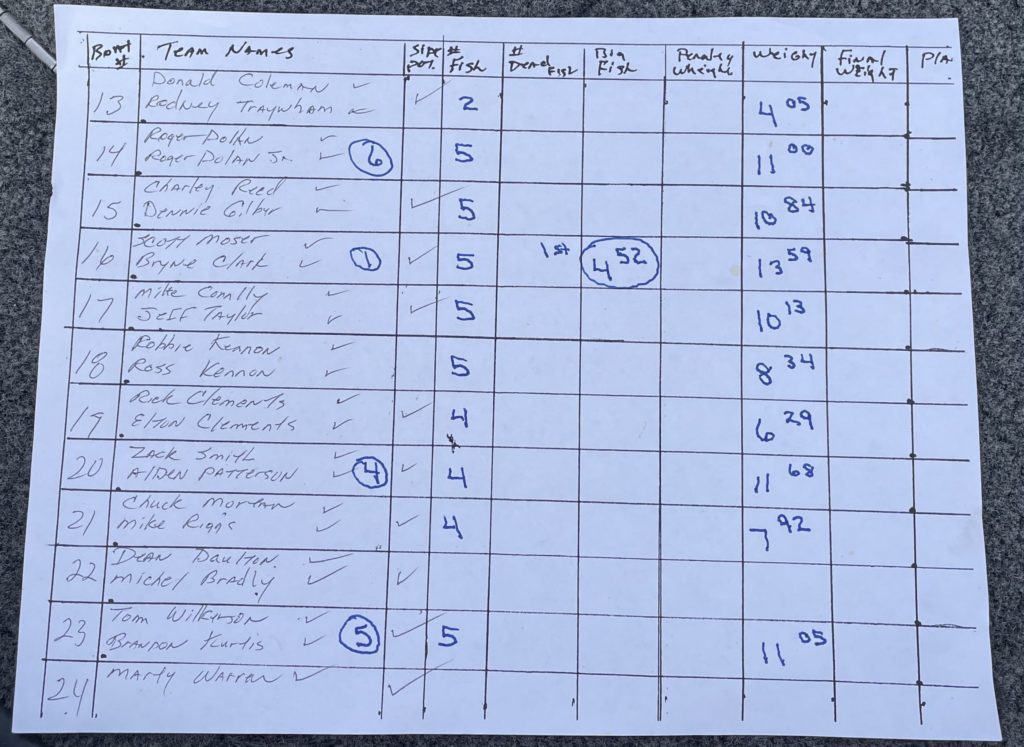 Boat # Team Names Side Pot. # Fish # Dead Fish Big Fish Penalty Wheight Weight Final Weight Pla
Donald Coleman ✓
13 Rodney Traywham ✓ ✓ 2 4 05
Roger Dolan ✓
14 Roger Dolan Jr. ✓ 6 5 11 00
Charley Reed ✓
15 Dennie ✓ 5 10 84
Scott Moser ✓
16 Bryne Clark ✓ 1 ✓ 5 1st 4 52 13 59
Mike Conlly ✓
17 Jeff Taylor ✓ ✓ 5 10 13
Robbie Kennon ✓
18 Ross Kennon ✓ 5 8 34
Rick Clements ✓
19 Elton Clements ✓ ✓ 4 6 29
Zack Smith ✓
20 Aiden Patterson ✓ 4 ✓ 4 11 68
Chuck Morgan ✓
21 Mike Riggs ✓ ✓ 4 7 92
Dean Daulton ✓
22 Michel Bradly ✓ ✓
Tom Wilkerson ✓
23 Brandon Kurtis ✓ 5 ✓ 5 11 05
Marty Warran ✓
24 ✓